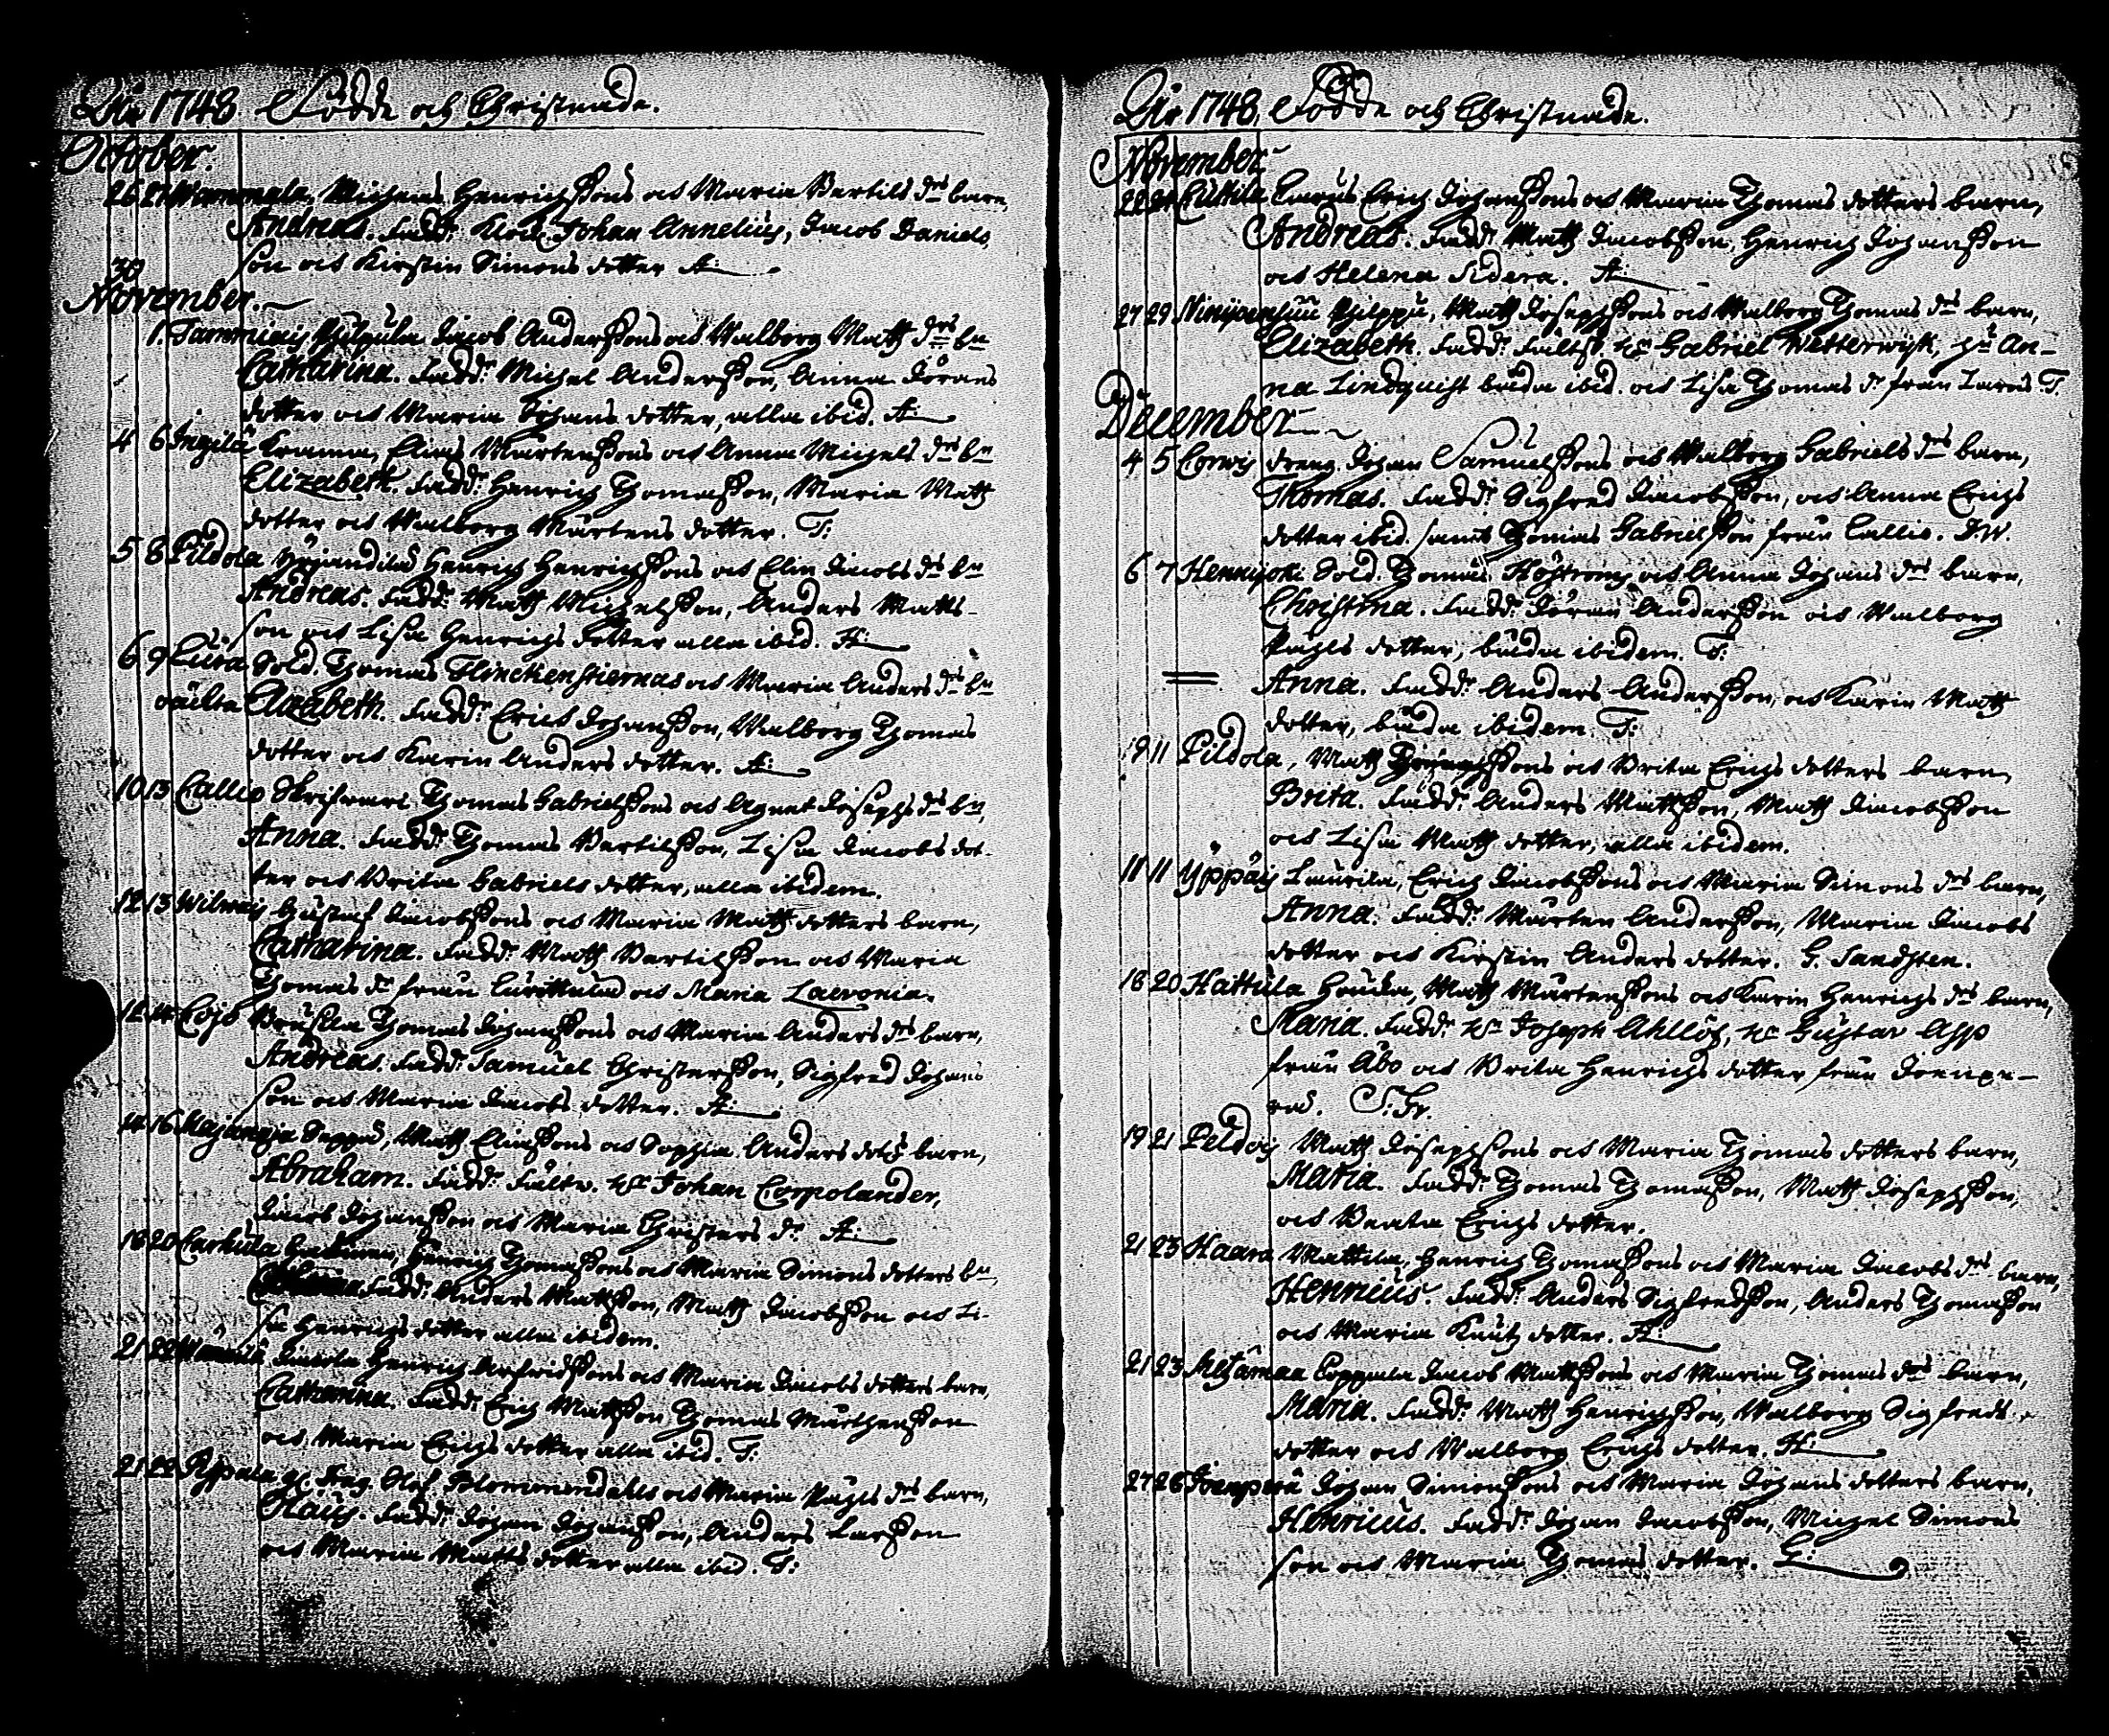 Åhr 1748. Födde och Christnade.
October.
26 27 Wammala, Michels Henrichssons och Maria Bertils drs barn,
Andreas. Fadd: Klock. Johan Annelius, Jacob Daniels
son och Kirstin Simons dotter A:
30
November.
1. Tammiais Jacob Anderssons och Walborg Matts drs bn
Catharina. Fadd: Michel Andersson, Anna Jörans
dotter och Maria Johans dotter, alla ibid. A:
4 6 Ingilä Krama, Elias Mårtenssons och Anna Michels drs bn
Elizabeth. Fadd: Henrich Thomasson, Maria Matts
dotter och Walborg Mårtens dotter. T:
5 8 Pildola Henrich Henrichssons och Elin Jacobs drs bn
Andreas. Fadd: Matts Michelsson, Anders Matts-
son och Lisa Henrichs dotter alla ibid. A:
6 9 Liura Sold. Thomas Flinckenstiernas och Maria Anders drs bn
Elizabeth. Fadd: Erich Johansson, Walborg Thomas
dotter och Karin Anders dotter. A:
10 13 Callio Skrifvare Thomas Gabrielssons och Agnet Josephs drs bn,
Anna. Fadd: Thomas Bertilsson, Lisa Jacobs dot-
ter och Brita Gabriels dotter, alla ibidem.
12 13 Gustaf Jacobssons och Maria Matts dotters barn,
Catharina. Fadd: Matts Bertilsson och Maria
Thomas dr från och Maria Laevonia.
12 14 Cojo Thomas Johanssons och Maria Anders drs barn,
Andreas. Fadd: Samuel Christersson, Sigfred Johans
son och Maria Jacobs dotter. A:
14 16 Majanoja Seppä, Matts Eliassons och Sophia Anders dotrs barn,
Abraham. Fadd: Fältw. Hr Johan Corpolander,
Jacob Johansson och Maria Christers dr A:
18 20 Carhula Henrich Thomassons och Maria Simons dotters bn,
Fadd: Anders Mattsson, Matts Jacobsson och Li-
sa Henrichs dotter alla ibidem.
21 22 Henrich och Maria Jacobs dotters barn,
Catharina. Fadd: Erich Mattsson Thomas Mårthensson
och Maria Erichs dotter alla ibid. T:
21 22 Olof Blommendahls och Maria Påhls drs barn,
Claus. Fadd: Johan Johansson, Anders Larsson
och Maria Matts dotter alla ibid. T:
Åhr 1748, Födde och Christnade.
November
22 24 Cuttila Erich Johanssons och Maria Thomas dotters barn,
Andreas. Fadd: Matts Jacobsson, Henrich Johansson
och Helena Sidera. A:
27 29 Ninijoensuu Philppu, Matts Josephssons och Walborg Thomas drs barn,
Elizabeth. Fadd: Hr Gabriel Wetterwijk, An-
na Lindquist båda ibid. och Lisa Thomas dr från T.
December
4 5 Corwis dreng Johan Samuelssons och Walborg Gabriels drs barn,
Thomas. Fadd: Sigfred Jacobsson, och Anna Erichs
dotter ibid. samt Thomas Gabrielsson från Callio.
6 7 Hennijoki Sold. Thomas och Anna Johans drs barn,
Christina. Fadd: Jöran Andersson och Walborg
Påhls dotter, båda ibidem. T:
Anna. Fadd: Anders Andersson, och Karin Matts
dotter, båda ibidem. T:
11 Pildola, Matts och Brita Erichs dotters barn
Brita. Fadd: Anders Mattsson, Matts Jacobsson
och Lisa Matts dotter, alla ibidem.
11 11 Yppäis Laurila, Erich Jacobssons och Maria Simons drs barn,
Anna. Fadd: Mårten Andersson, Maria Jacobs
dotter och Kirstin Anders dotter. G. Sandsten.
18 20 Hattula Matts Mårtenssons och Karin Henrichs drs barn,
Maria. Fadd: Hr Joseph Ahllöf, Hr Gustav Asp
från Åbo och Brita Henrichs dotter från Joenpe-
rä. S: Fr.
19 21 Peldois Matts Josephssons och Maria Thomas dotters barn,
Maria. Fadd: Thomas Thomasson, Matts Josephsson,
och Beata Erichs dotter.
21 23 Haara Mattila, Henrich Thomassons och Maria Jacobs drs barn,
Henricus. Fadd: Anders Sigfredsson, Anders Thomasson
och Maria Knuts dotter. A:
21 23 Metzämaa Jacob Mattssons och Maria Thomas drs barn,
Maria. Fadd: Matts Henrichsson, Walborg Sigfreds
dotter och Walborg Erichs dotter. A:
26 Joenperä Johan Simonssons och Maria Johans dotters barn,
Henricus. Fadd: Johan Jacobsson, Michel Simons
son och Maria Thomas dotter. G: